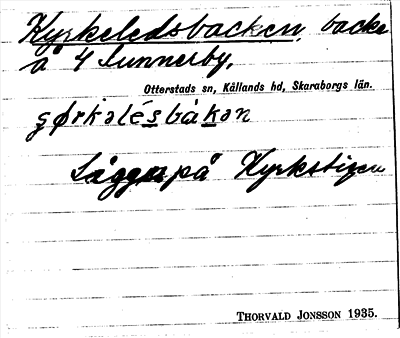 Kyrkeledsbacken, backe
å 4 Sunnerby,
Otterstads sn, Kållands hd, Skaraborgs län.
gørkəlésbàkən
Lågg på Kyrkstigen
THORVALD JONSSON 1935.